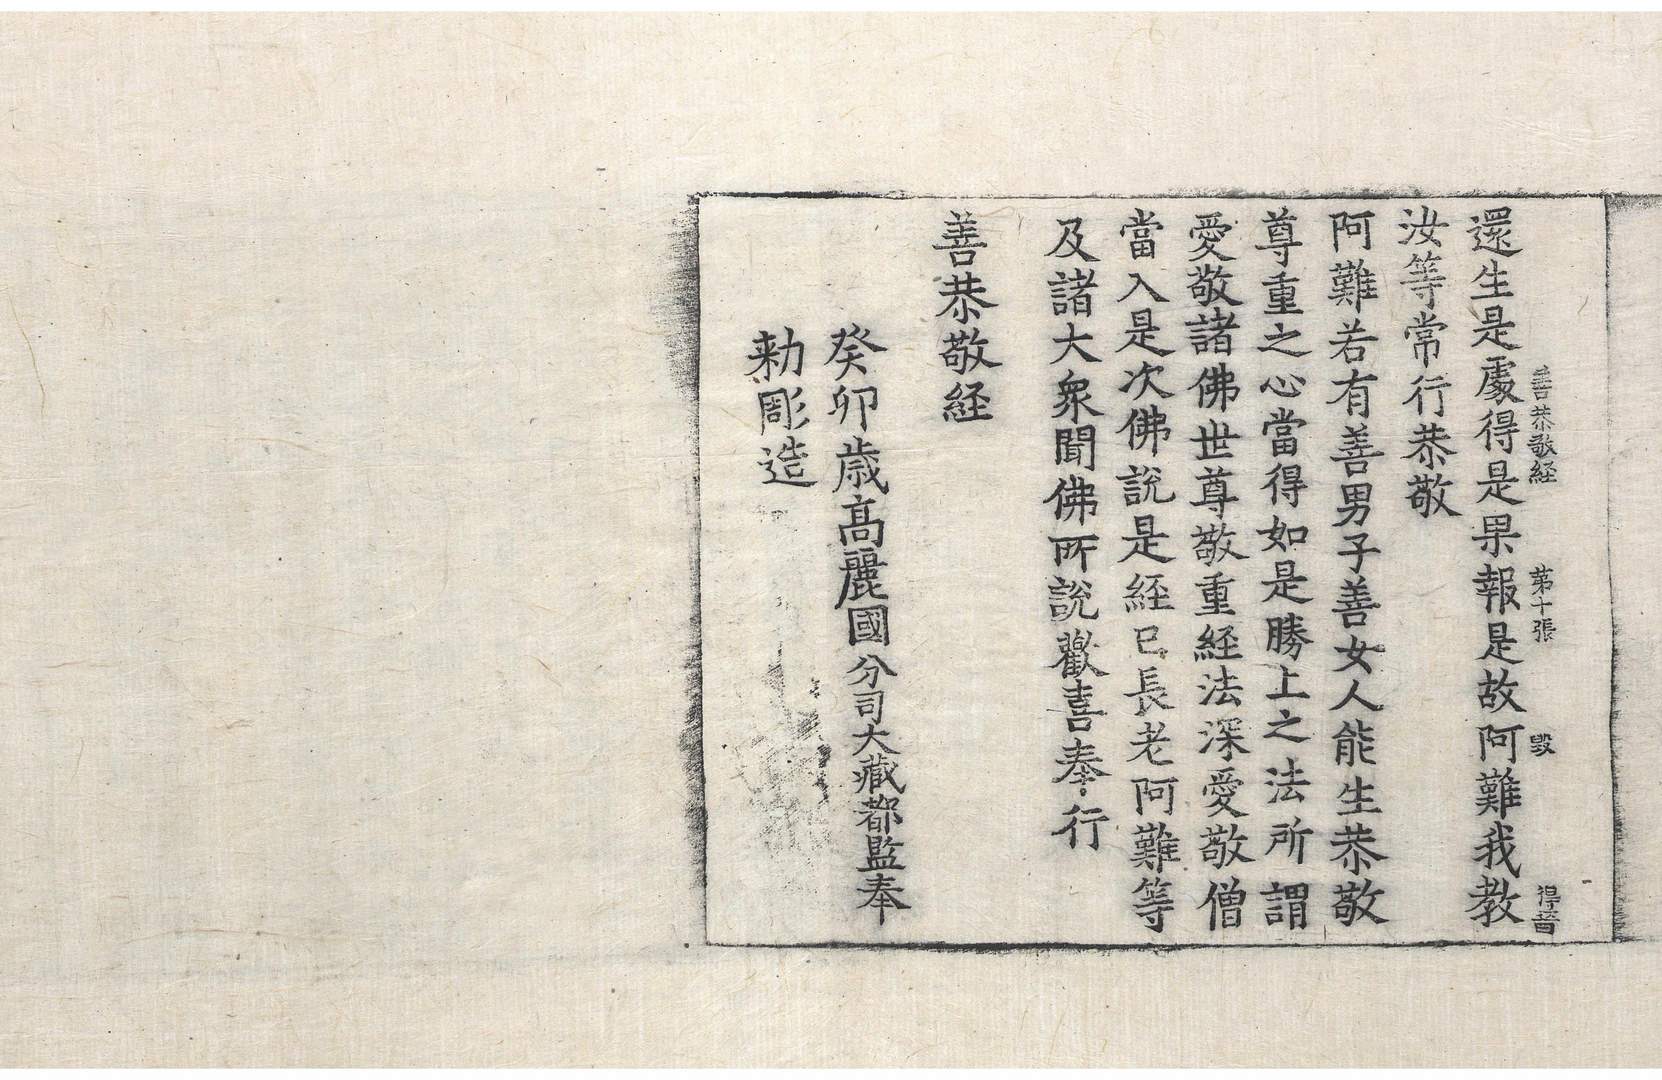 善恭敬経 第十張 毀 得音
還生是處得是果報是故阿難我教
汝等常行恭敬
阿難若有善男子善女人能生恭敬
尊重之心當得如是勝上之法所謂
愛敬諸佛世尊敬重経法深愛敬僧
當入是次佛說是経已長老阿難等
及諸大衆聞佛所說歡喜奉行
善恭敬経
癸卯歲髙麗國分司大藏都監奉
勑彫造